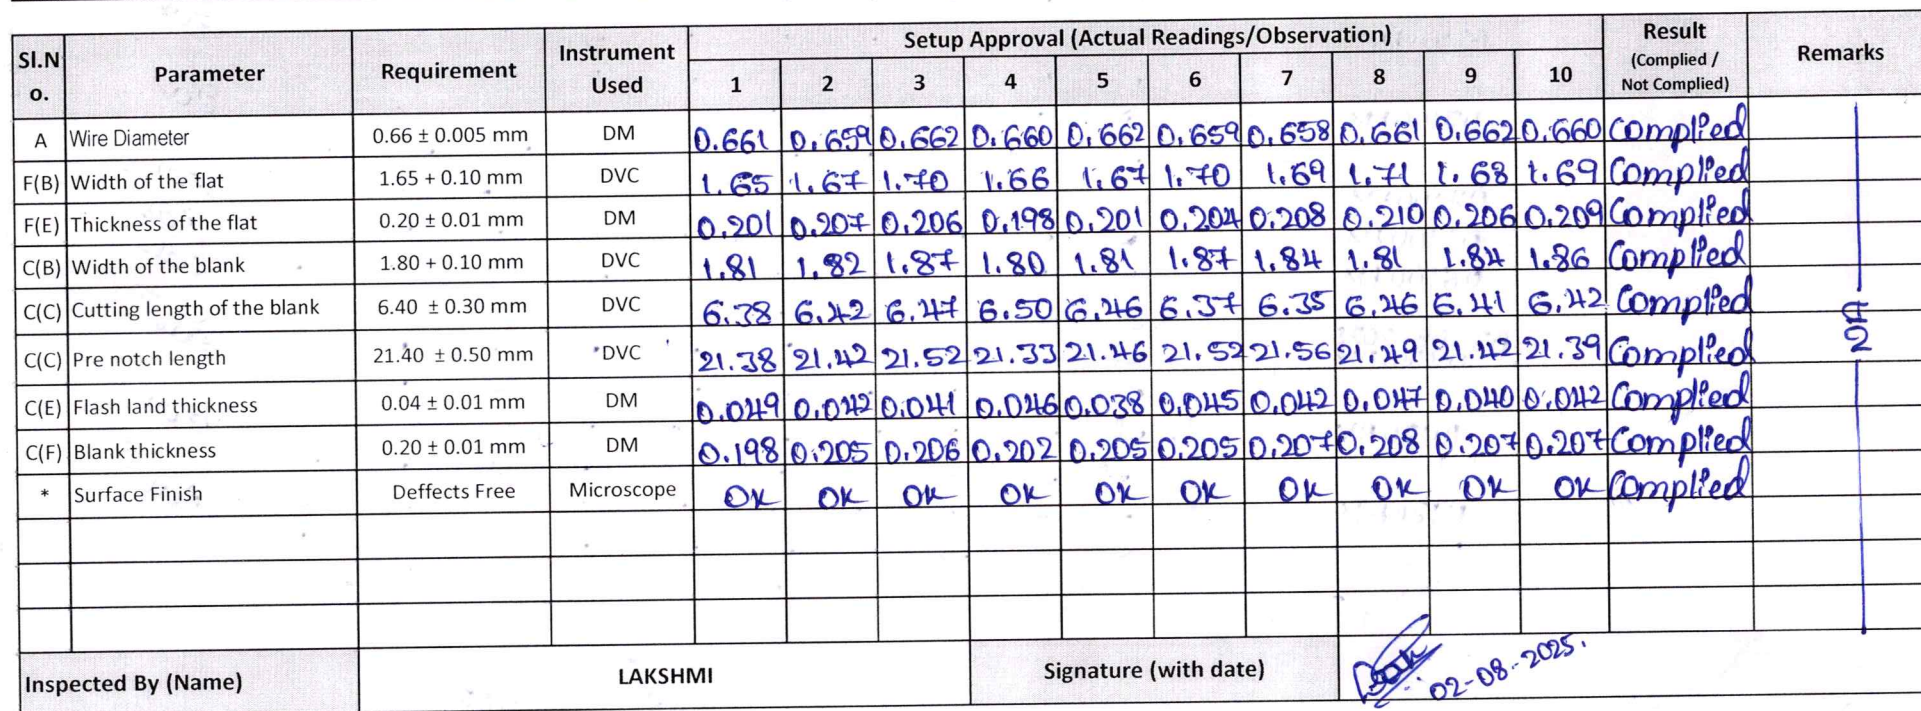 Sl.No. Parameter Requirement Instrument Used Setup Approval (Actual Readings/Observation) Result (Complied / Not Complied) Remarks
1 2 3 4 5 6 7 8 9 10
A Wire Diameter 0.66 ± 0.005 mm DM 0.661 0.659 0.662 0.660 0.662 0.659 0.658 0.661 0.662 0.660 Complied
F(B) Width of the flat 1.65 + 0.10 mm DVC 1.65 1.67 1.70 1.66 1.67 1.70 1.69 1.71 1.68 1.69 Complied
F(E) Thickness of the flat 0.20 ± 0.01 mm DM 0.201 0.207 0.206 0.198 0.201 0.204 0.208 0.210 0.206 0.209 Complied
C(B) Width of the blank 1.80 + 0.10 mm DVC 1.81 1.82 1.87 1.80 1.81 1.87 1.84 1.81 1.84 1.86 Complied
C(C) Cutting length of the blank 6.40 ± 0.30 mm DVC 6.38 6.42 6.47 6.50 6.46 6.37 6.35 6.46 6.41 6.42 Complied
C(C) Pre notch length 21.40 ± 0.50 mm DVC 21.38 21.42 21.52 21.33 21.46 21.52 21.56 21.49 21.42 21.39 Complied
C(E) Flash land thickness 0.04 ± 0.01 mm DM 0.049 0.042 0.041 0.046 0.038 0.045 0.042 0.047 0.040 0.042 Complied
C(F) Blank thickness 0.20 ± 0.01 mm DM 0.198 0.205 0.206 0.202 0.205 0.205 0.207 0.208 0.207 0.207 Complied
* Surface Finish Deffects Free Microscope OK OK OK OK OK OK OK OK OK OK Complied
Inspected By (Name) LAKSHMI Signature (with date) 02-08-2025.